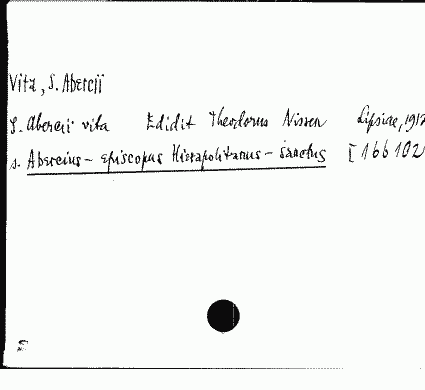 Vita, S. Abercii
S. Abercii vita Edidit Theodorus Nissen Lipsiae, 1912
s. Abercius - episcopus Hierapolitanus - sanctus I 166102